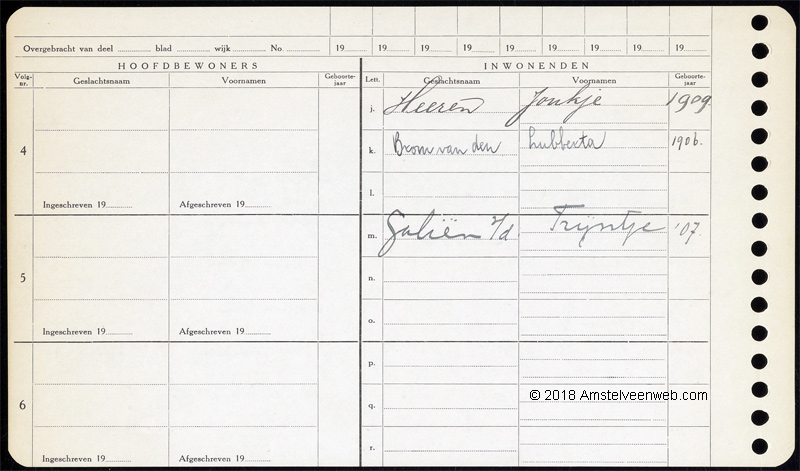 Overgebracht van deel ............ blad ............ wijk ............ No ............ 19 19 19 19 19 19 19 19
HOOFDBEWONERS INWONENDEN
Volg-nr. Geslachtsnaam Voornamen Geboorte-jaar Lett. Geslachtsnaam Voornamen Geboorte-jaar
j. Heeren Joukje 1909
4 k. Brom van den Lubberta 1906.
l.
Ingeschreven 19............ Afgeschreven 19............
m. Galiën v/d Trijntje '07.
5 n.
o.
Ingeschreven 19............ Afgeschreven 19............
p.
© 2018 Amstelveenweb.com
6 q.
r.
Ingeschreven 19............ Afgeschreven 19............